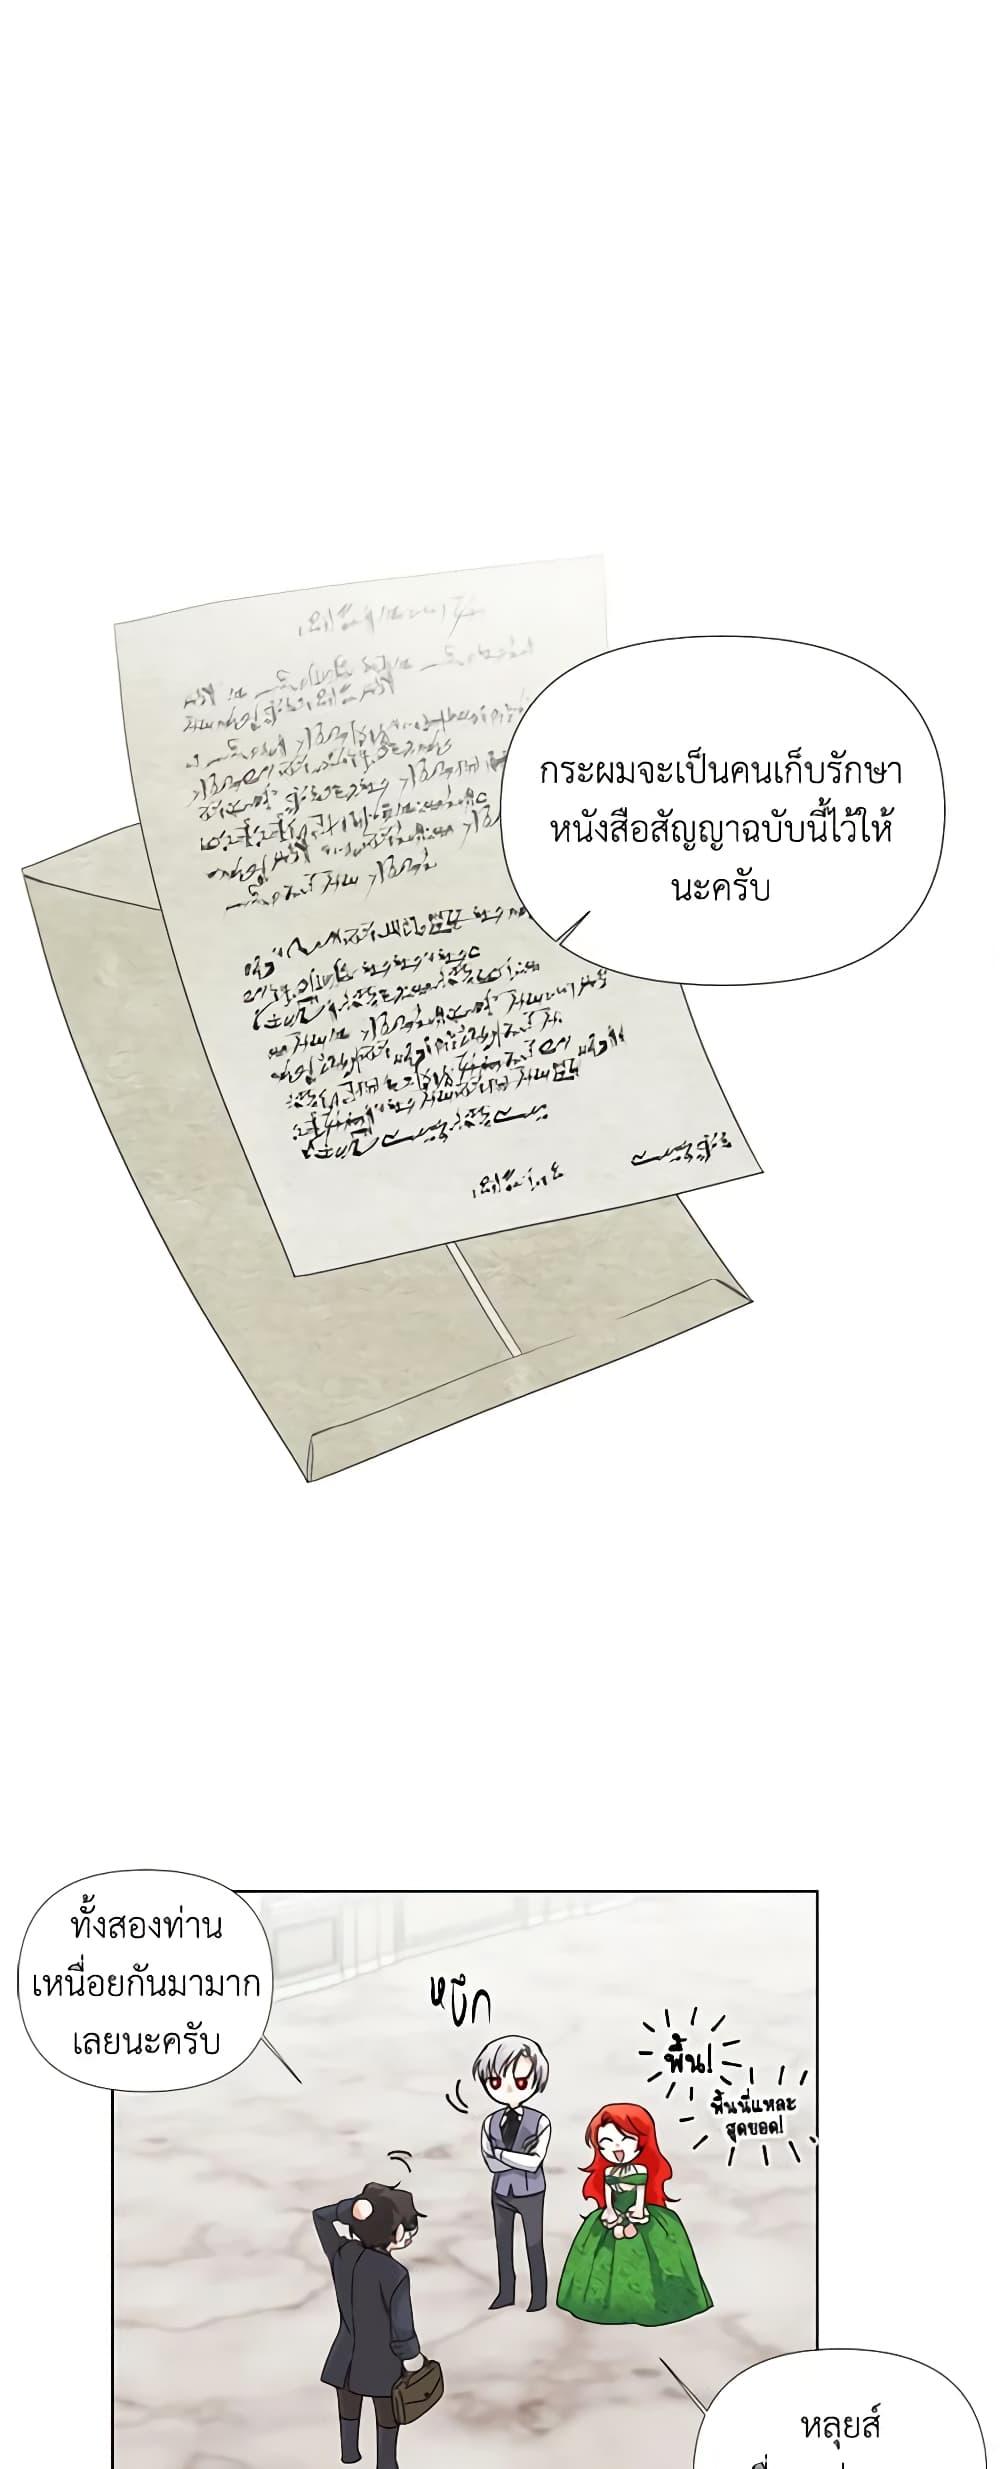 กระผมจะเป็นคนเก็บรักษา
หนังสือสัญญาฉบับนี้ไว้ให้
นะครับ
ทั้งสองท่าน
เหนื่อยกันมามาก
เลยนะครับ
หงึก
พื้น!
พื้นนี่แหละ
สุดยอด!
หลุยส์